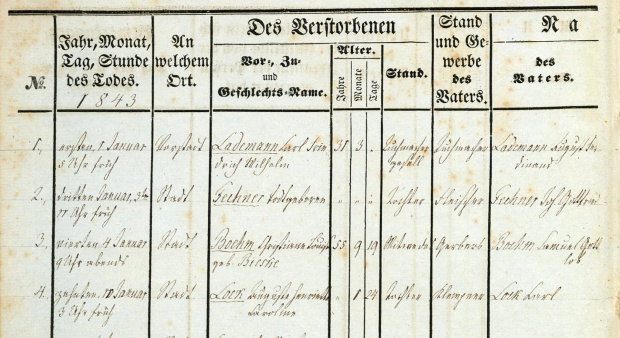 Des Verstorbenen
Stand
und Ge-
werbe
des
Vaters.
Na
Jahr, Monat,
Tag, Stunde
des Todes.
1843
An
welchem
Ort.
Vor-, Zu-
und
Geschlechts-Name.
Alter.
Jahre
Monate
Tage
Stand.
des
Vaters.
№.
1., ersten, 1 Januar Vorstadt Lademann Carl Frie 31 3 . Tuchmacher Tuchmacher Lademann August Fer
5 Uhr früh drich Wilhelm gesell dinand
2., dritten Januar, 3ten Stadt Fechner Todtgeboren " " " Tochter Fleischer Fechner Joh. Gottfried
11 Uhr früh
3., vierten 4 Januar Stadt Boehm Christiane Louise 55 9 19 Gerbers Boehm Samuel Gott
9 Uhr abends geb. lob
4. zehnten, 10 Januar Stadt Lock Auguste Henriette " 1 24 Tochter Klempner Lock Carl
3 Uhr früh Caroline